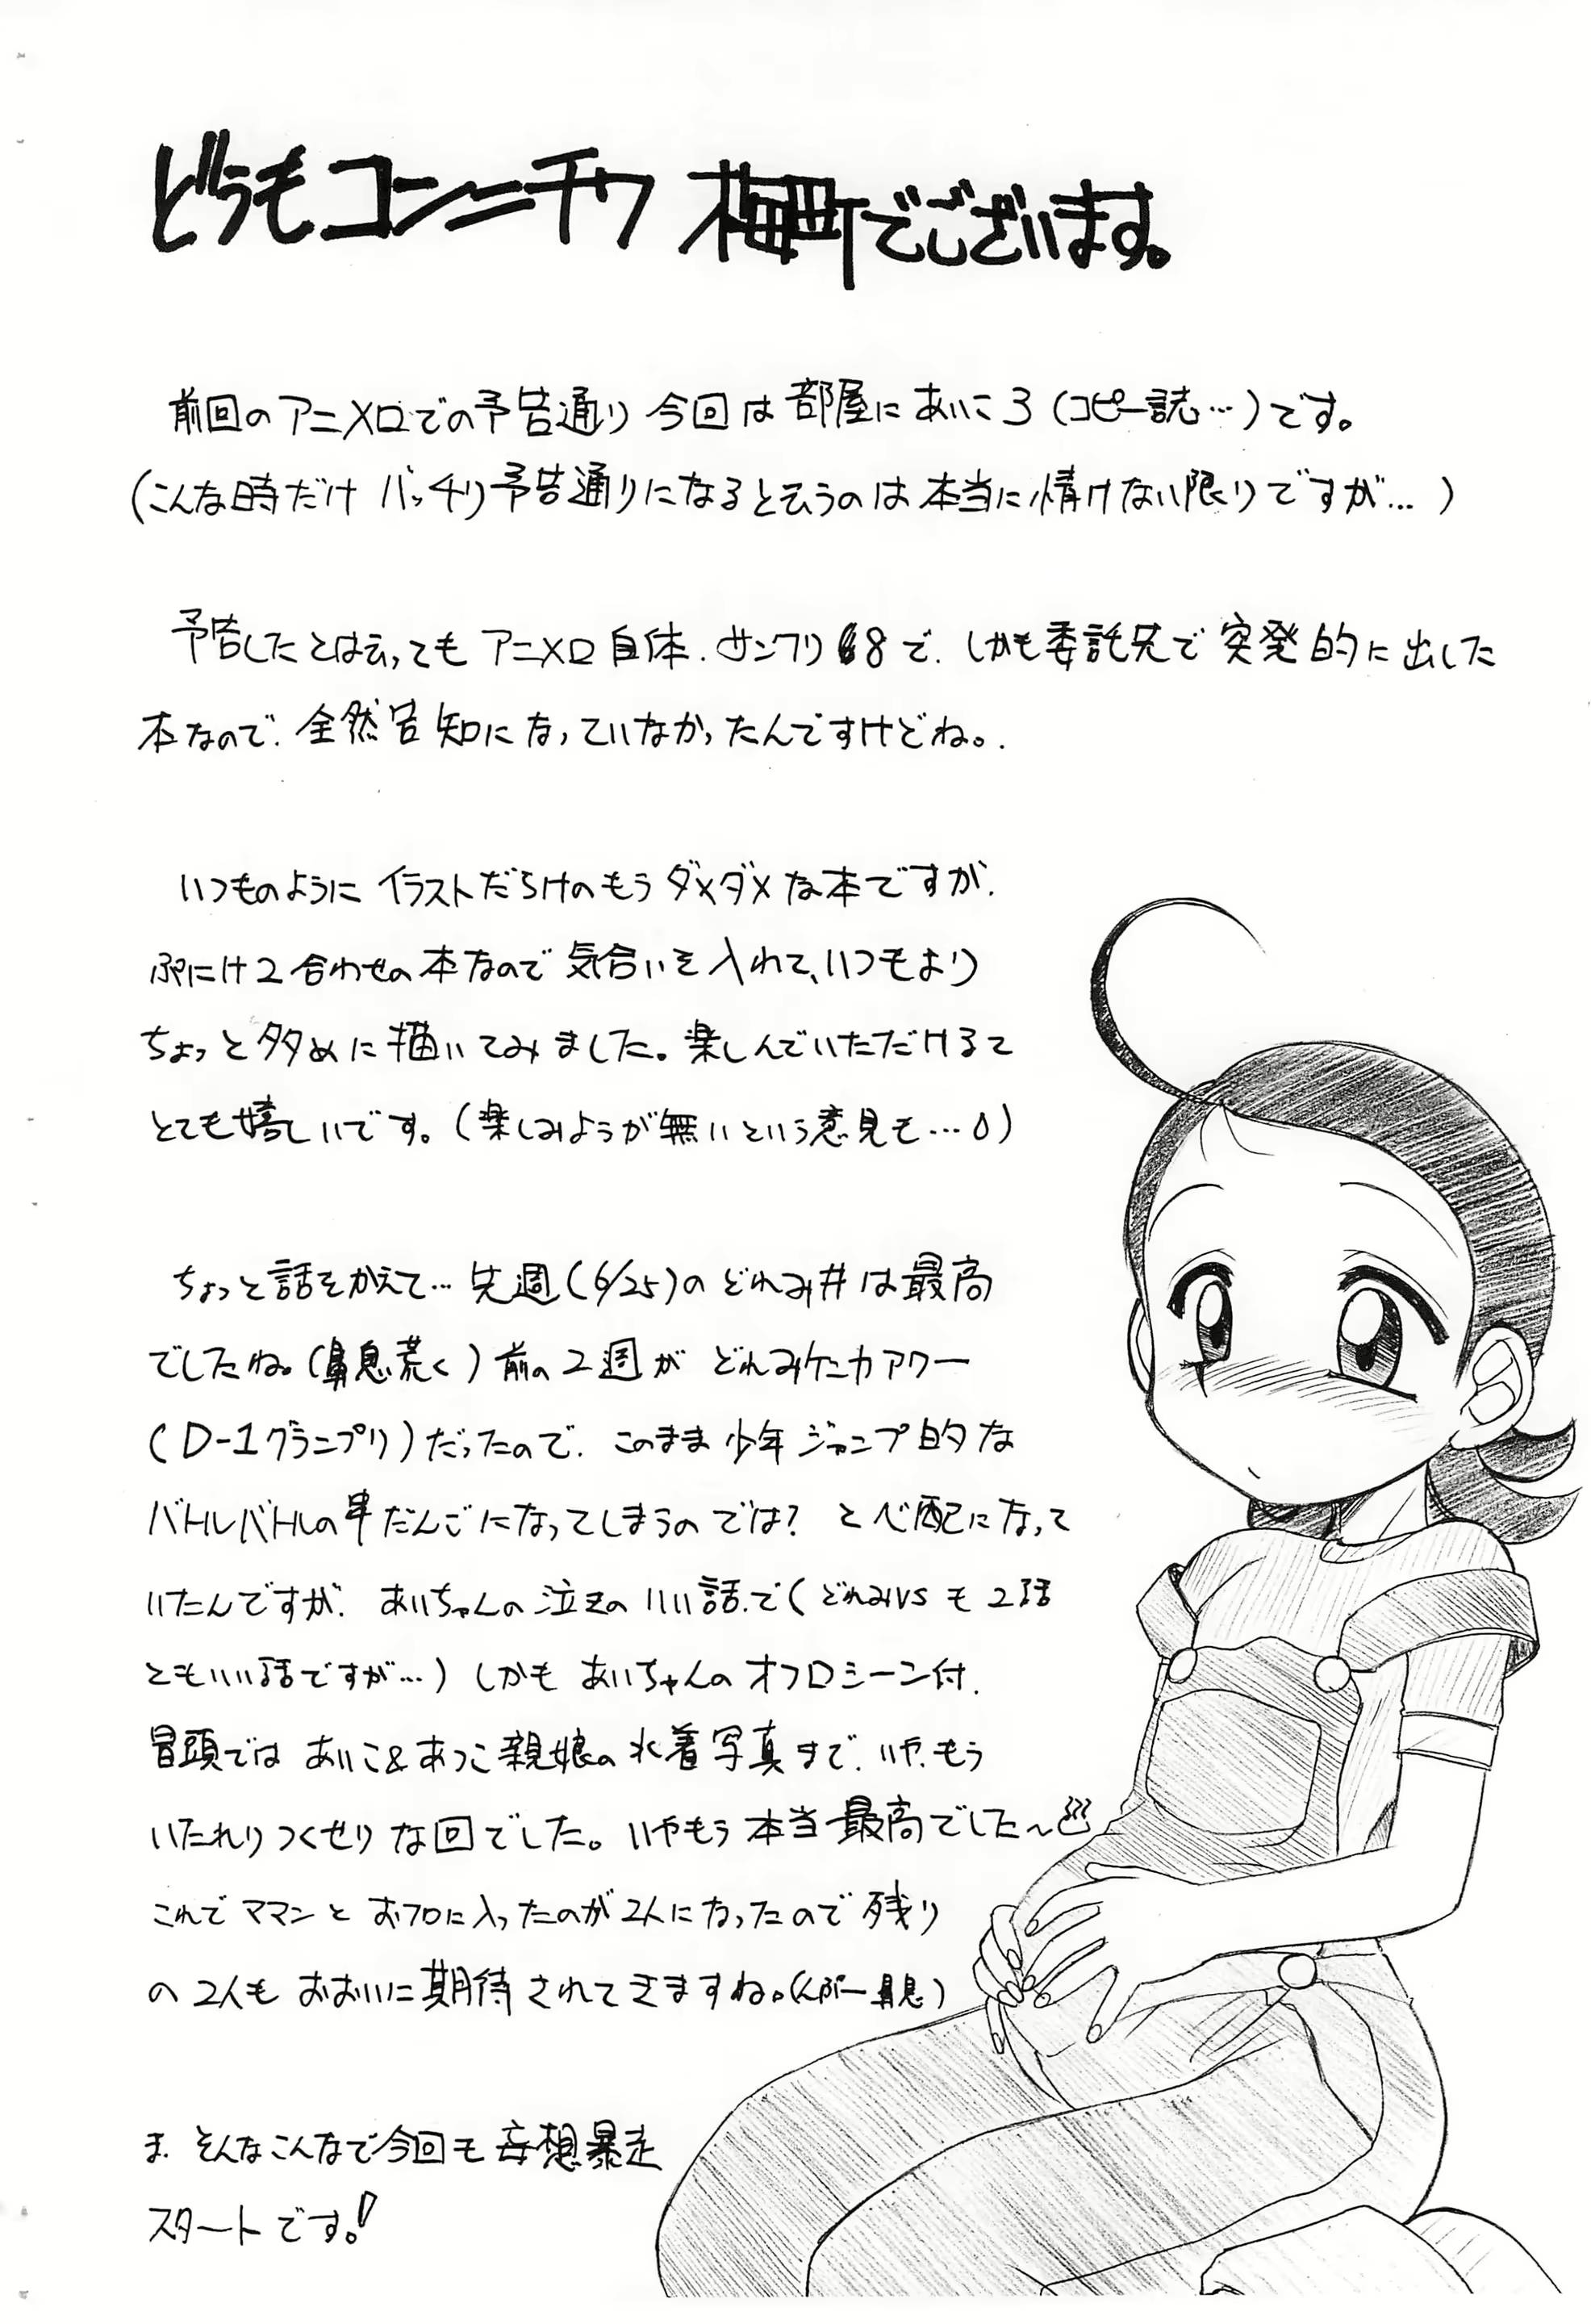 どうもコンニチワ 梅町でございます。
前回のアニメロでの予告通り 今回は部屋にあいこ3（コピー誌…）です。
（こんな時だけ バッチリ予告通りになると云うのは本当に情けない限りですが…）
予告したとは云ってもアニメロ自体、サンクリ8で、しかも委託先で突発的に出した
本なので、全然告知になっていなかったんですけどね。
いつものように イラストだらけのもうダメダメな本ですが、
ぷにけ2合わせの本なので気合いを入れて、いつもより
ちょっと多めに描いてみました。楽しんでいただけるて
とても嬉しいです。（楽しみようが無いという意見も…）
ちょっと話をかえて…先週（6/25）のどれみ#は最高
でしたね。（鼻息荒く）前の2週がどれみケンカアワー
（D-1グランプリ）だったので、このまま少年ジャンプ的な
バトルバトルの串だんごになってしまうのでは？と心配になって
いたんですが、あいちゃんの泣きのいい話で（どれみVSも2話
ともいい話ですが…）しかもあいちゃんのオフロシーン付、
冒頭ではあいこ&あつこ親娘の水着写真まで、いや、もう
いたれりつくせりな回でした。いやもう本当最高でした～
これでママンとおフロに入ったのが2人になったので残り
の2人もおおいに期待されてきますね。（んふー鼻息）
ま、そんなこんなで今回も妄想暴走
スタートです。！